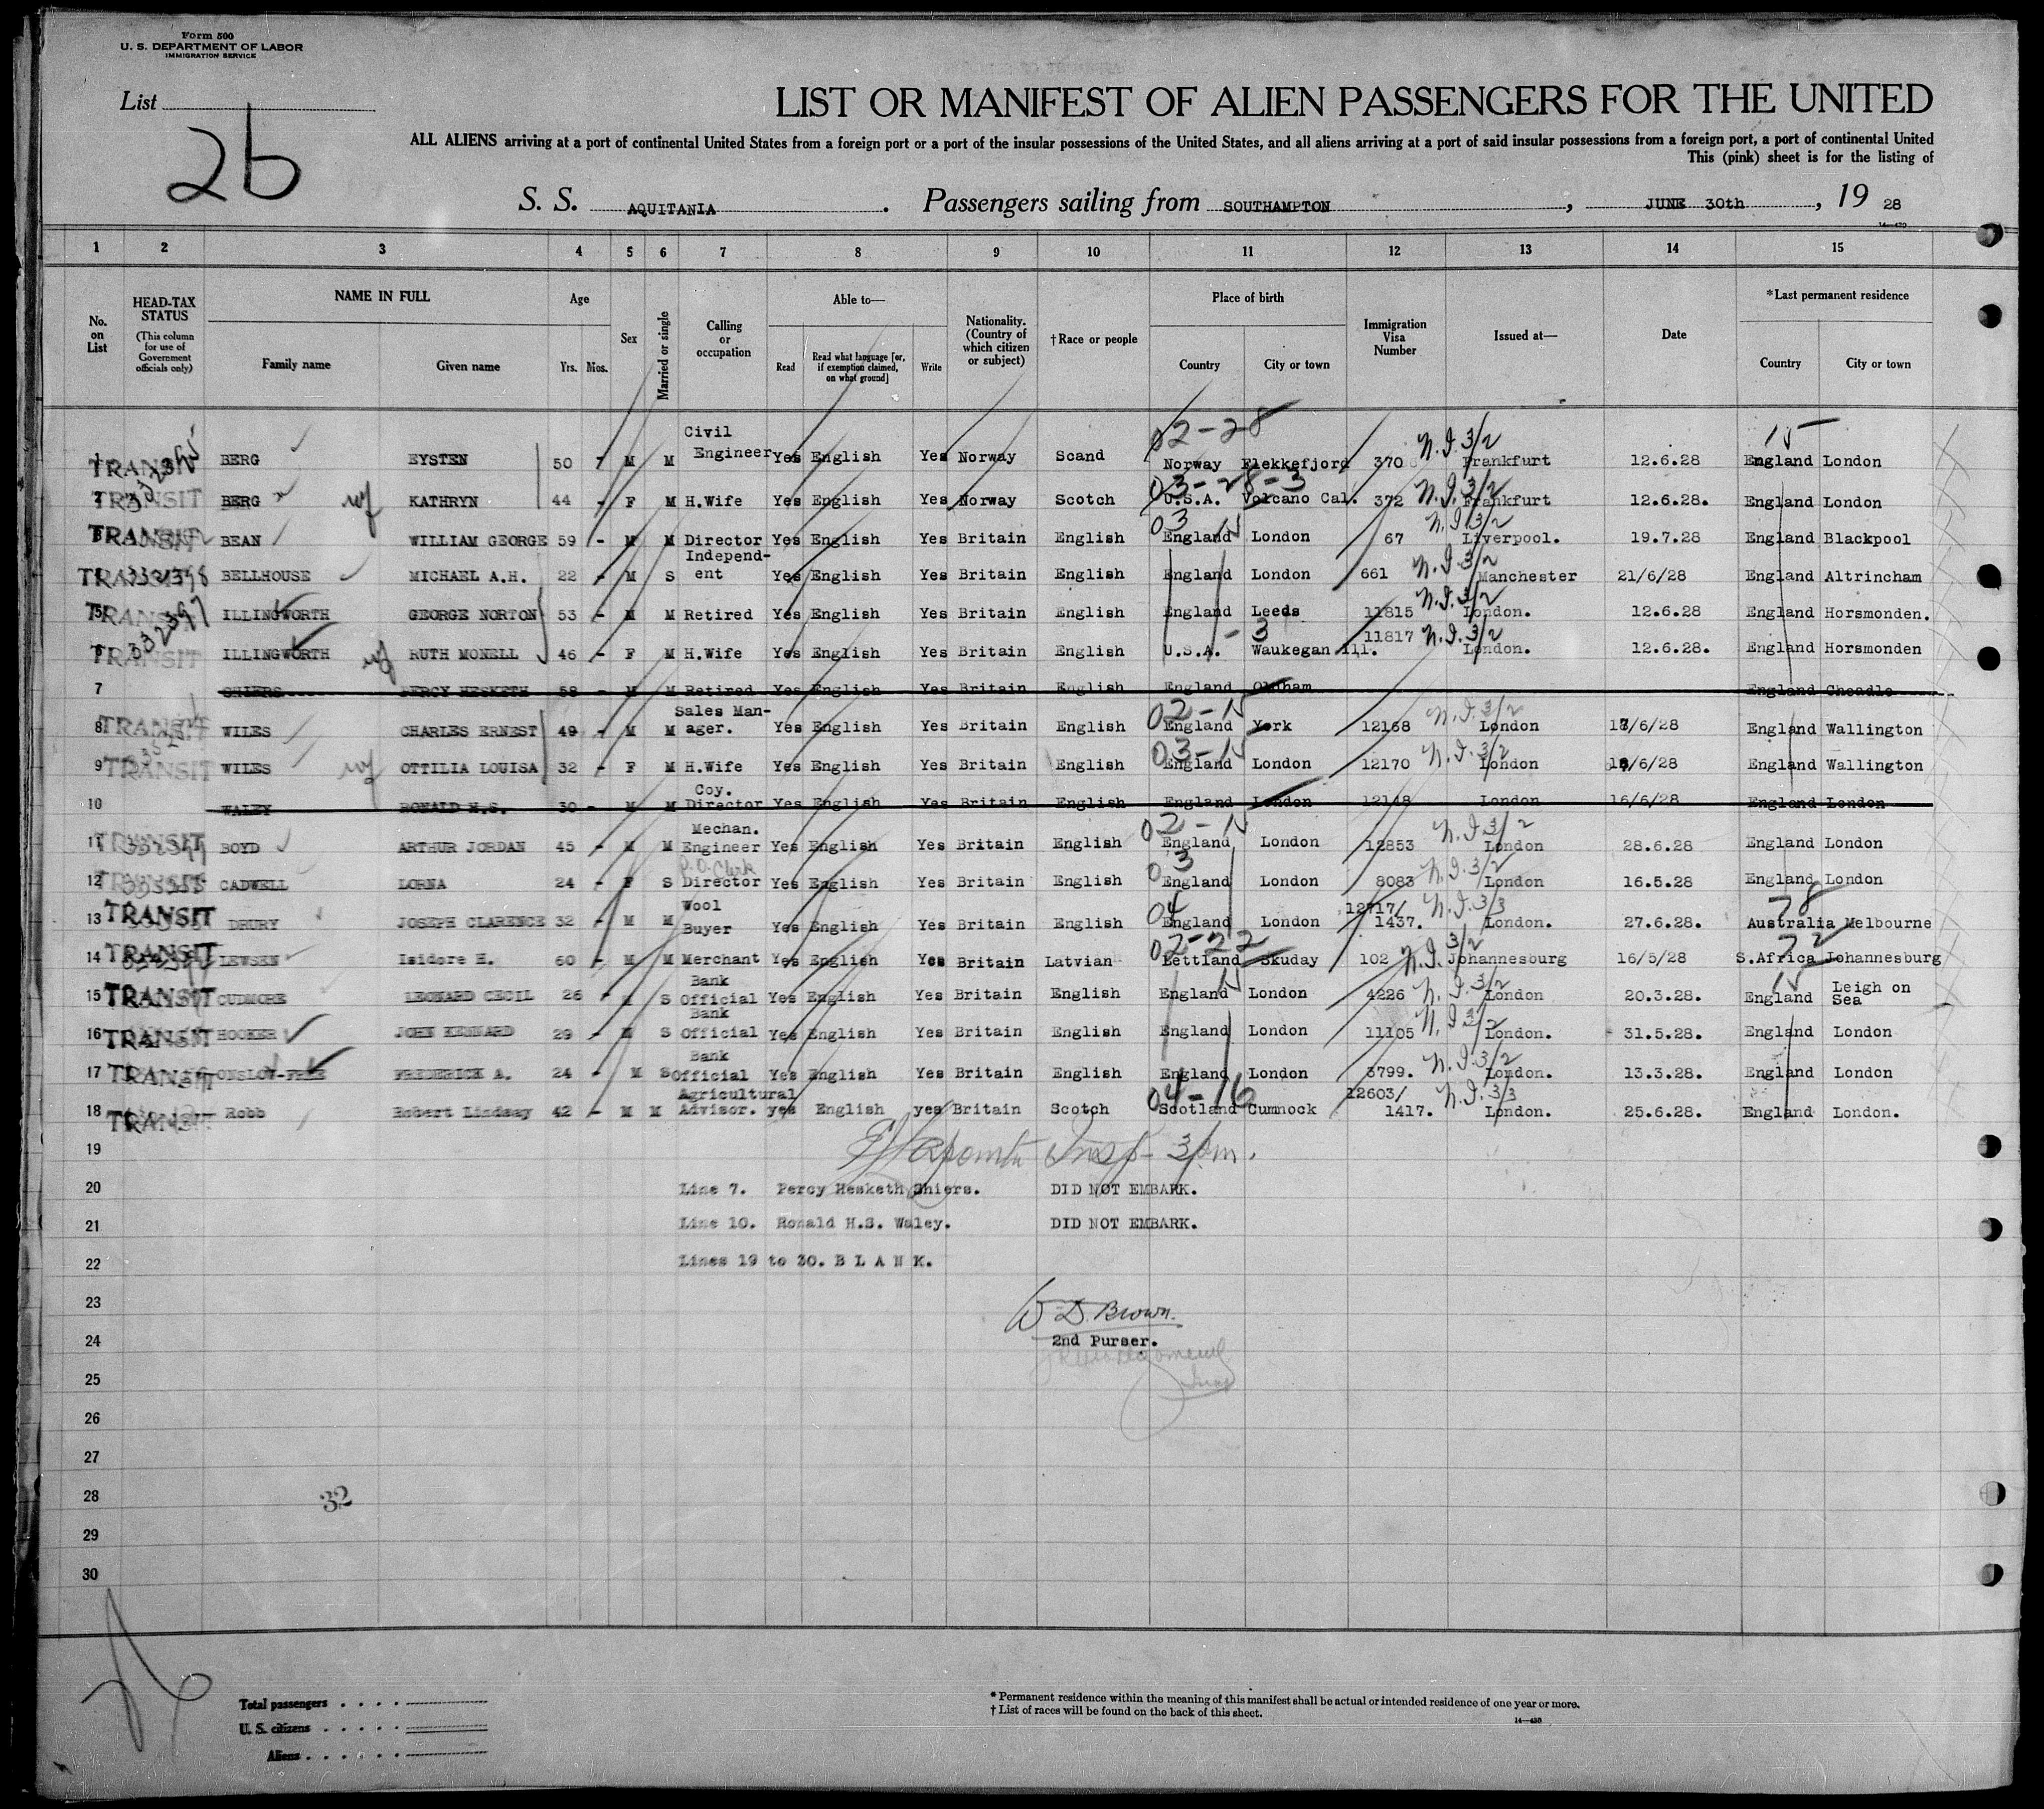 Form 500
U. S. DEPARTMENT OF LABOR
IMMIGRATION SERVICE
List
26
LIST OR MANIFEST OF ALIEN PASSENGERS FOR THE UNITED
ALL ALIENS arriving at a port of continental United States from a foreign port or a port of the insular possessions of the United States, and all aliens arriving at a port of said insular possessions from a foreign port, a port of continental United
This (pink) sheet is for the listing of
S. S. AQUITANIA . Passengers sailing from SOUTHAMPTON , JUNE 30th , 19 28
14—430
1 2 3 4 5 6 7 8 9 10 11 12 13 14 15
No. on List
HEAD-TAX STATUS
(This column for use of Government officials only)
NAME IN FULL
Family name
Given name
Age
Yrs. Mos.
Sex
Married or single
Calling or occupation
Able to—
Read
Read what language [or, if exemption claimed, on what ground]
Write
Nationality. (Country of which citizen or subject)
†Race or people
Place of birth
Country
City or town
Immigration Visa Number
Issued at—
Date
*Last permanent residence
Country
City or town
02-28 N.I. 3/2 15
1 TRANSIT BERG EYSTEN 50 - M M Civil Engineer Yes English Yes Norway Scand Norway Flekkefjord 370 Frankfurt 12.6.28 England London
03-28-3 N.I. 3/2
2 TRANSIT BERG wf KATHRYN 44 - F M H.Wife Yes English Yes Norway Scotch U.S.A. Volcano Cal. 372 Frankfurt 12.6.28. England London
03 N.I. 3/2
TRANSIT BEAN WILLIAM GEORGE 59 - M M Director Yes English Yes Britain English England London 67 Liverpool. 19.7.28 England Blackpool
N.I. 3/2
TRANSIT BELLHOUSE MICHAEL A.H. 22 - M S Independ-ent Yes English Yes Britain English England London 661 Manchester 21/6/28 England Altrincham
N.I. 3/2
5 TRANSIT ILLINGWORTH GEORGE NORTON 53 - M M Retired Yes English Yes Britain English England Leeds 11815 London. 12.6.28 England Horsmonden.
- 3 N.I. 3/2
TRANSIT ILLINGWORTH wf RUTH MONELL 46 - F M H.Wife Yes English Yes Britain English U.S.A. Waukegan Ill. 11817 London. 12.6.28. England Horsmonden
7 SHIERS PERCY HESKETH 58 - M M Retired Yes English Yes Britain English England Oldham England Cheadle
02-15 N.I. 3/2
8 TRANSIT WILES CHARLES ERNEST 49 - M M Sales Man-ager. Yes English Yes Britain English England York 12168 London /6/28 England Wallington
03-15 N.I. 3/2
9 TRANSIT WILES wf OTTILIA LOUISA 32 - F M H.Wife Yes English Yes Britain English England London 12170 London /6/28 England Wallington
10 WALEY RONALD H.S. 30 - M M Coy. Director Yes English Yes Britain English England London 12148 London 16/6/28 England London
02-15 N.I. 3/2
11 TRANSIT BOYD ARTHUR JORDAN 45 - M M Mechan. Engineer Yes English Yes Britain English England London 12853 London 28.6.28 England London
P.O. Clerk 03 N.I. 3/2
12 TRANSIT CADWELL LORNA 24 - F S Director Yes English Yes Britain English England London 8083 London 16.5.28 England London
04 N.I. 3/3 78
13 TRANSIT DRURY JOSEPH CLARENCE 32 - M M Wool Buyer Yes English Yes Britain English England London 12717/1437. London. 27.6.28. Australia Melbourne
02-22 N.I. 3/2 72
14 TRANSIT LEWSEN Isidore H. 60 - M M Merchant Yes English Yes Britain Latvian Lettland Skuday 102 Johannesburg 16/5/28 S.Africa Johannesburg
15 N.I. 3/2 15
15 TRANSIT CUDMORE LEONARD CECIL 26 - M S Bank Official Yes English Yes Britain English England London 4226 London 20.3.28. England Leigh on Sea
N.I. 3/2
16 TRANSIT HOOKER JOHN KENNARD 29 - M S Bank Official Yes English Yes Britain English England London 11105 London. 31.5.28. England London
N.I. 3/2
17 TRANSIT ONSLOW-FREE FREDERICK A. 24 - M S Bank Official Yes English Yes Britain English England London 3799. London. 13.3.28. England London
04-16 N.I. 3/3
18 TRANSIT Robb Robert Lindsay 42 - M M Agricultural Advisor. yes English yes Britain Scotch Scotland Cumnock 12603/1417. London. 25.6.28. England London.
19 Insp- 3 pm.
20 Line 7. Percy Hesketh Shiers. DID NOT EMBARK.
21 Line 10. Ronald H.S. Waley. DID NOT EMBARK.
22 Lines 19 to 30. B L A N K.
23 W D. Brown.
24 2nd Purser.
25 Insp
26
27
28 32
29
30
Total passengers
U. S. citizens
Aliens
* Permanent residence within the meaning of this manifest shall be actual or intended residence of one year or more.
† List of races will be found on the back of this sheet.
14—430